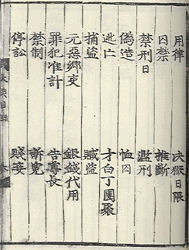 用律 決獄日限
囚禁 推斷
禁刑日 濫刑
偽造 恤囚
逃亡 才白丁團聚
捕盜 贓盜
元惡鄕吏 銀錢代用
罪犯准計 告尊長
禁制 訴冤
停訟 賤妾